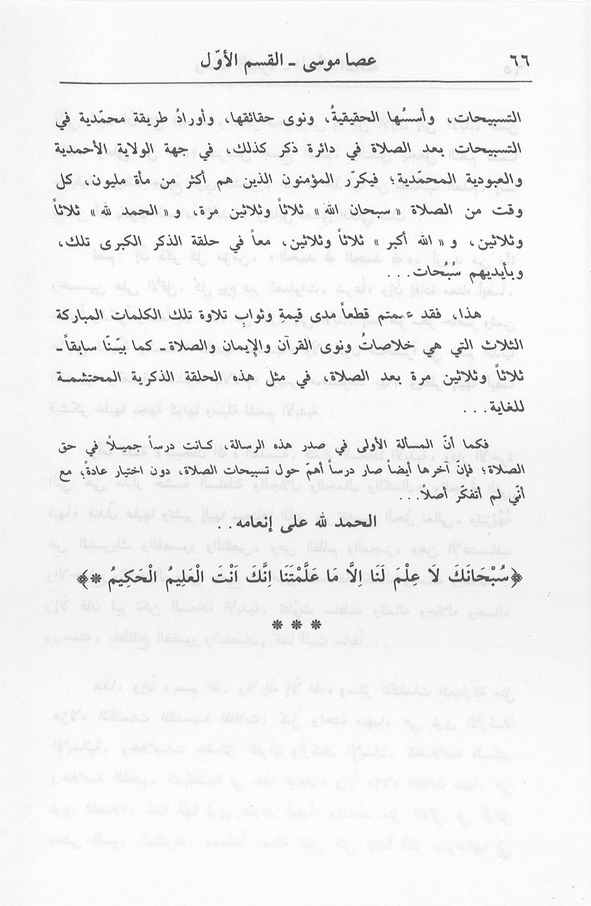 ٦٦ عصا موسى - القسم الأوّل
التسبيحات، وأسسُها الحقيقيةُ، ونوى حقائقها، وأورادُ طريقة محمّدية في
التسبيحات بعد الصلاة في دائرة ذكر كذلك، في جهة الولاية الأحمدية
والعبودية المحمّدية؛ فيكرّر المؤمنون الذين هم أكثر من مأة مليون، كل
وقت من الصلاة «سبحان الله» ثلاثاً وثلاثين مرة، و«الحمد لله» ثلاثاً
وثلاثين، و«الله أكبر» ثلاثاً وثلاثين، معاً في حلقة الذكر الكبرى تلك،
وبأيديهم سُبُحات...
هذا، فقد فهمتم قطعاً مدى قيمةِ وثوابِ تلاوة تلك الكلمات المباركة
الثلاث التي هي خلاصاتُ ونوى القرآن والإيمان والصلاة - كما بيّنّا سابقاً -
ثلاثاً وثلاثين مرة بعد الصلاة، في مثل هذه الحلقة الذكرية المحتشمة
للغاية...
فكما أنّ المسألة الأولى في صدر هذه الرسالة، كانت درساً جميلاً في حق
الصلاة؛ فإنّ آخرها أيضاً صار درساً أهمّ حول تسبيحات الصلاة، دون اختيار عادةً، مع
أني لم أتفكّر أصلاً...
الحمد لله على إنعامه..
﴿سُبْحَانَكَ لاَ عِلْمَ لَنَا اِلاَّ مَا عَلَّمْتَنَا اِنَّكَ اَنْتَ الْعَلِيمُ الْحَكِيمُ *﴾
* * *